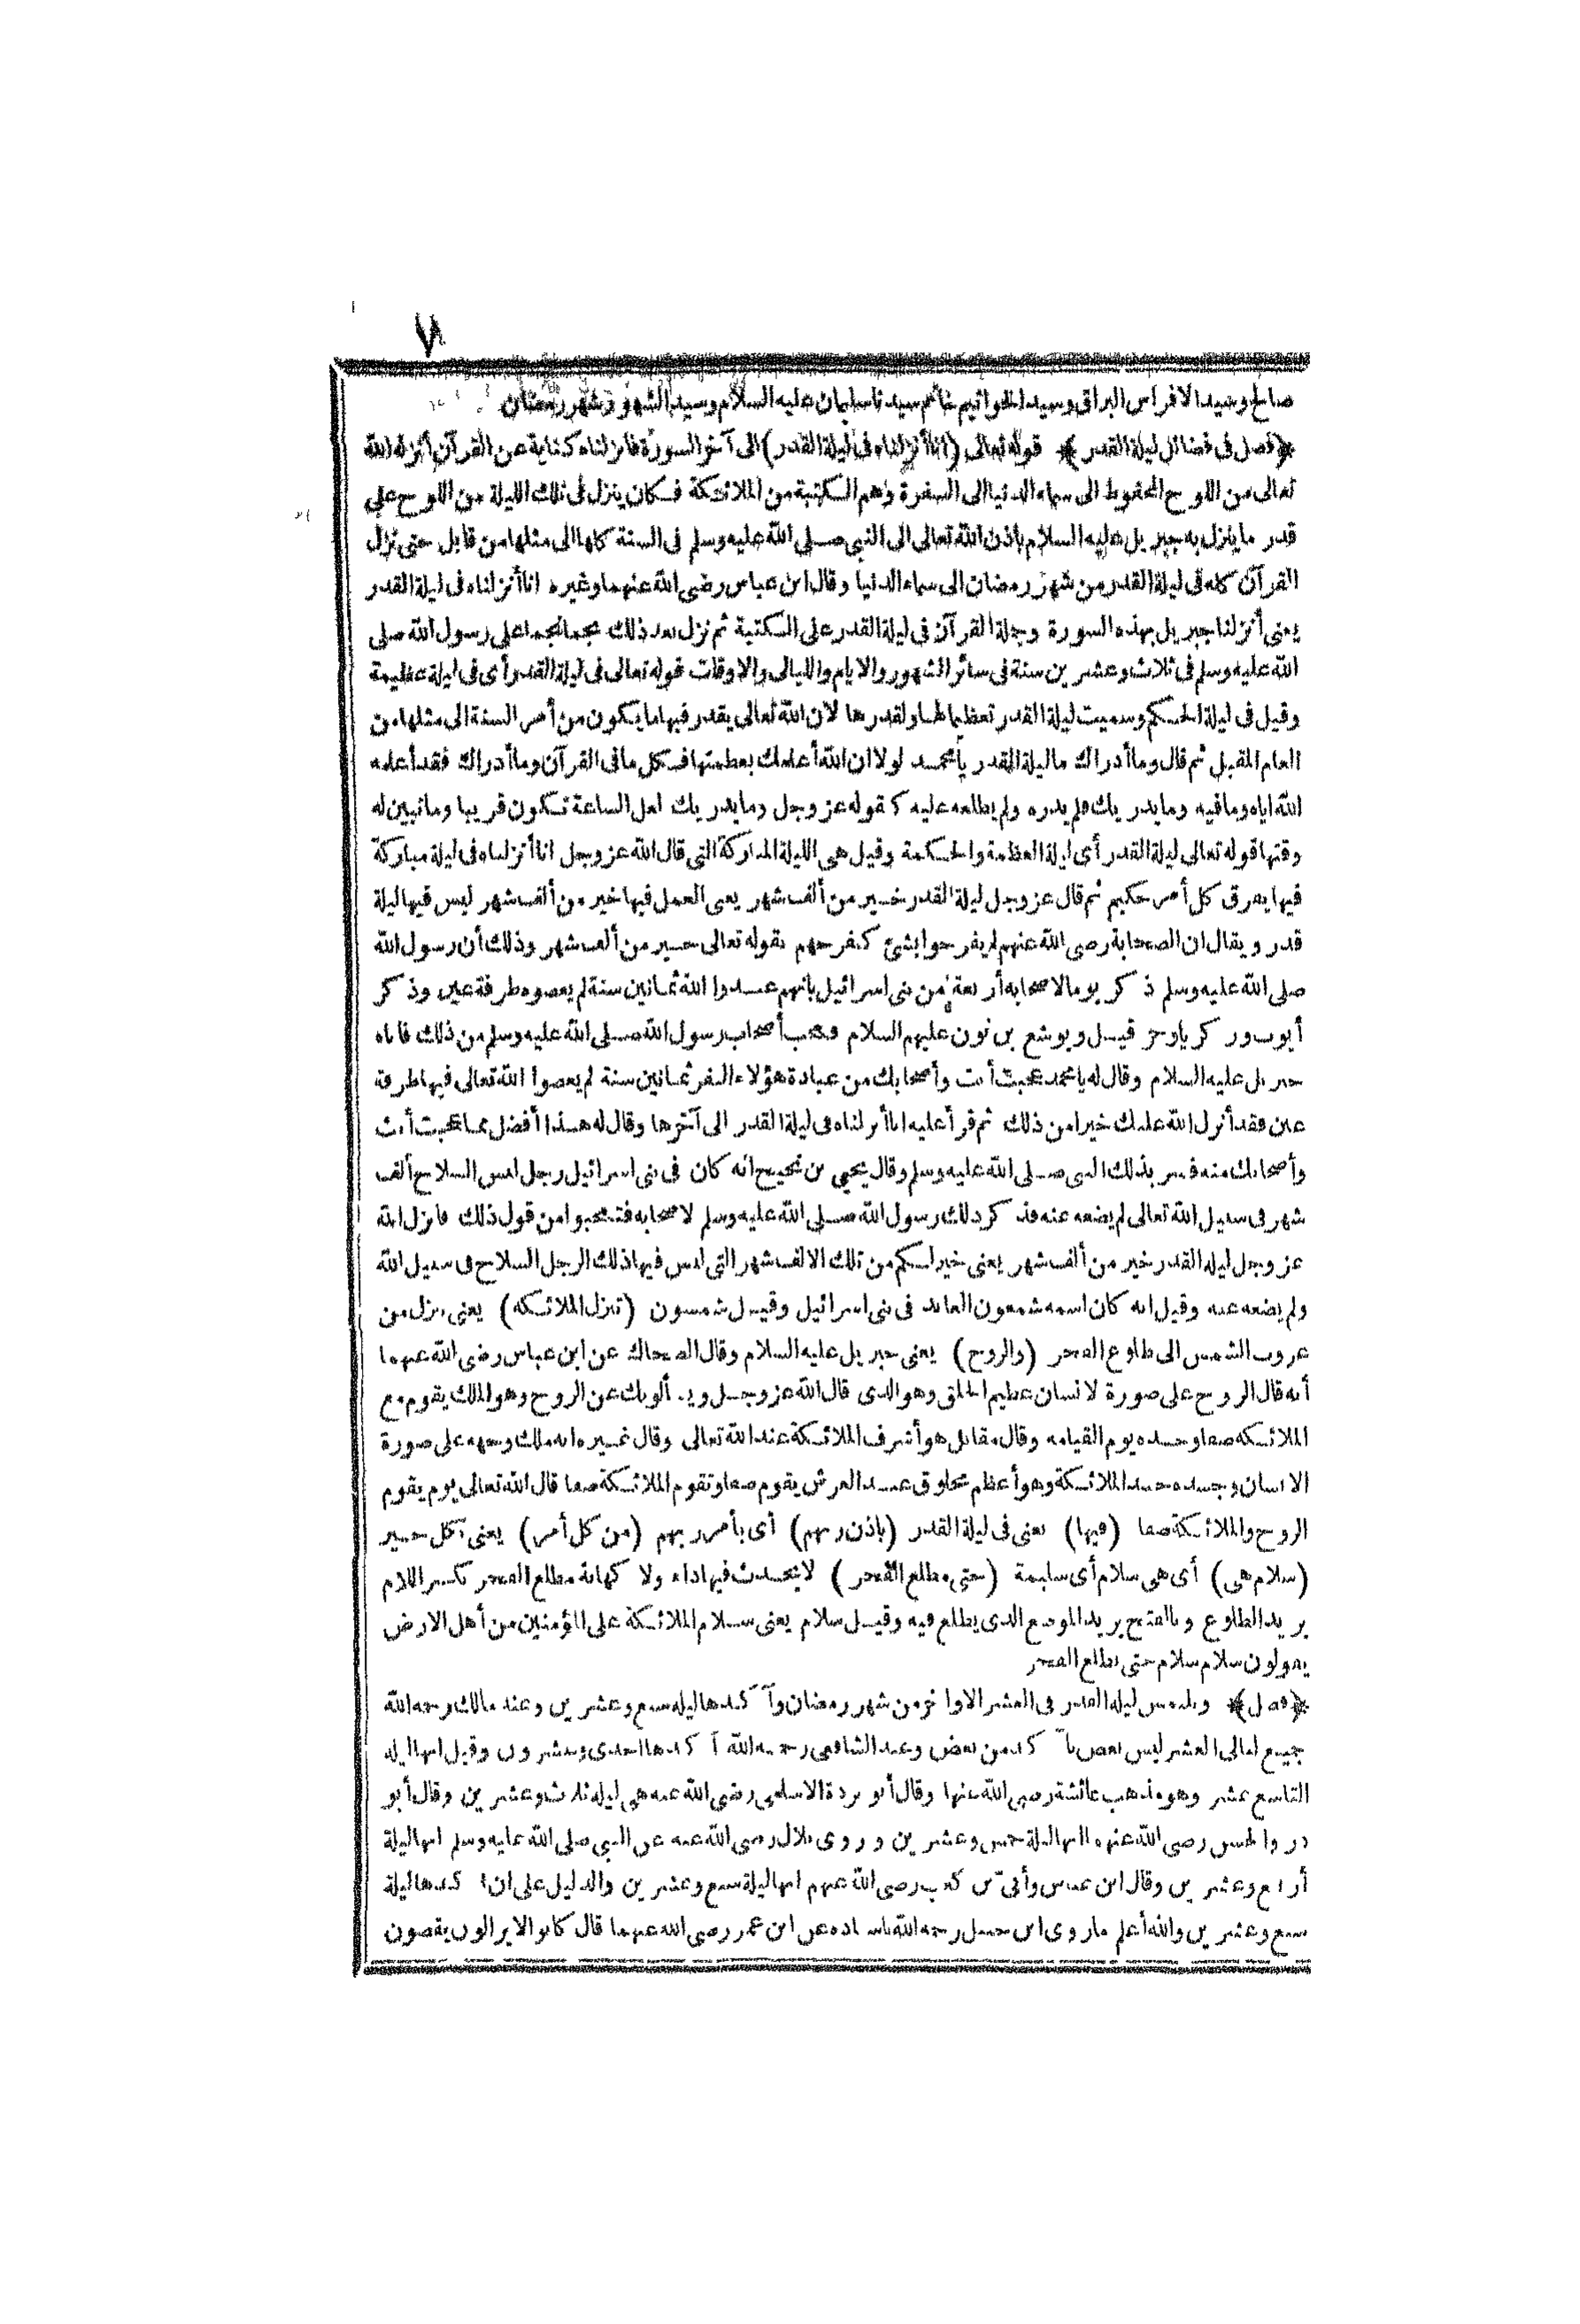 ٧
صالح وسيد الافراس البراق وسيد الخواتيم خاتم سيدنا سليمان عليه السلام وسيد الشهور شهر رمضان
﴿فصل فى فضائل ليلة القدر﴾ قوله تعالى (انا أنزلناه فى ليلة القدر) الى آخر السورة فانزلناه كناية عن القرآن أنزله الله
تعالى من اللوح المحفوظ الى سماء الدنيا الى السفرة وهم الكتبة من الملائكة فكان ينزل فى تلك الليلة من اللوح على
قدر ما ينزل به جبريل عليه السلام باذن الله تعالى الى النبى صلى الله عليه وسلم فى السنة كلها الى مثلها من قابل حتى نزل
القرآن كله فى ليلة القدر من شهر رمضان الى سماء الدنيا وقال ابن عباس رضى الله عنهما وغيره انا أنزلناه فى ليلة القدر
يعنى أنزلنا جبريل بهذه السورة وجملة القرآن فى ليلة القدر على الكتبة ثم نزل بعد ذلك نجما نجما على رسول الله صلى
الله عليه وسلم فى ثلاث وعشرين سنة فى سائر الشهور والايام والليالى والاوقات قوله تعالى فى ليلة القدر أى فى ليلة عظيمة
وقيل فى ليلة الحكم وسميت ليلة القدر تعظيما لها ولقدرها لان الله تعالى يقدر فيها ما يكون من أمر السنة الى مثلها من
العام المقبل ثم قال وما أدراك ما ليلة القدر يا محمد لولا ان الله أعلمك بعظمتها فكل ما فى القرآن وما أدراك فقد أعلمه
الله اياه وما فيه وما يدريك فلم يدره ولم يطلعه عليه كقوله عز وجل وما يدريك لعل الساعة تكون قريبا وما تبين له
وقتها قوله تعالى ليلة القدر أى ليلة العظمة والحكمة وقيل هى الليلة المباركة التى قال الله عز وجل انا أنزلناه فى ليلة مباركة
فيها يفرق كل أمر حكيم ثم قال عز وجل ليلة القدر خير من ألف شهر يعنى العمل فيها خير من ألف شهر ليس فيها ليلة
قدر ويقال ان الصحابة رضى الله عنهم لم يفرحوا بشئ كفرحهم بقوله تعالى خير من ألف شهر وذلك أن رسول الله
صلى الله عليه وسلم ذكر يوما لاصحابه أربعة من بنى اسرائيل بانهم عبدوا الله ثمانين سنة لم يعصوه طرفة عين وذكر
أيوب وزكريا وحزقيل ويوشع بن نون عليهم السلام فعجب أصحاب رسول الله صلى الله عليه وسلم من ذلك فاتاه
جبريل عليه السلام وقال له يا محمد عجبت أنت وأصحابك من عبادة هؤلاء النفر ثمانين سنة لم يعصوا الله تعالى فيها طرفة
عين فقد أنزل الله عليك خيرا من ذلك ثم قرأ عليه انا أنزلناه فى ليلة القدر الى آخرها وقال له هذا أفضل مما عجبت أنت
وأصحابك منه فسر بذلك النبى صلى الله عليه وسلم وقال يحيى بن نجيح انه كان فى بنى اسرائيل رجل لبس السلاح ألف
شهر فى سبيل الله تعالى لم يضعه عنه فذكر ذلك رسول الله صلى الله عليه وسلم لاصحابه فتعجبوا من قول ذلك فانزل الله
عز وجل ليلة القدر خير من ألف شهر يعنى خير لكم من تلك الالف شهر التى لبس فيها ذلك الرجل السلاح فى سبيل الله
ولم يضعه عنه وقيل انه كان اسمه شمعون العابد فى بنى اسرائيل وقيل شمسون (تنزل الملائكة) يعنى تنزل من
غروب الشمس الى طلوع الفجر (والروح) يعنى جبريل عليه السلام وقال الضحاك عن ابن عباس رضى الله عنهما
أنه قال الروح على صورة لانسان عظيم الخلق وهو الذى قال الله عز وجل ويسألونك عن الروح وهو الملك يقوم مع
الملائكة صفا وحده يوم القيامة وقال مقاتل هو أشرف الملائكة عند الله تعالى وقال غيره انه ملك وجهه على صورة
الانسان وجسده جسد الملائكة وهو أعظم مخلوق عند العرش يقوم صفا وتقوم الملائكة صفا قال الله تعالى يوم يقوم
الروح والملائكة صفا (فيها) يعنى فى ليلة القدر (باذن ربهم) أى بأمر ربهم (من كل أمر) يعنى بكل خير
(سلام هى) أى هى سلام أى سليمة (حتى مطلع الفجر) لا يحدث فيها داء ولا كهانة مطلع الفجر بكسر اللام
يريد الطلوع وبالفتح يريد الموضع الذى يطلع فيه وقيل سلام يعنى سلام الملائكة على المؤمنين من أهل الارض
يقولون سلام سلام حتى يطلع الفجر
﴿فصل﴾ ويلتمس ليلة القدر فى العشر الاواخر من شهر رمضان وآكدها ليلة سبع وعشرين وعند مالك رحمه الله
جميع ليالى العشر ليس بعض بآكد من بعض وعند الشافعى رحمه الله آكدها احدى وعشرون وقيل انها ليلة
التاسع عشر وهو مذهب عائشة رضى الله عنها وقال أبو بردة الاسلمى رضى الله عنه هى ليلة ثلاث وعشرين وقال أبو
ذر والحسن رضى الله عنهما انها ليلة خمس وعشرين وروى بلال رضى الله عنه عن النبى صلى الله عليه وسلم انها ليلة
أربع وعشرين وقال ابن عباس وأبىّ بن كعب رضى الله عنهم انها ليلة سبع وعشرين والدليل على ان آكدها ليلة
سبع وعشرين والله أعلم ما روى ابن حنبل رحمه الله باسناده عن ابن عمر رضى الله عنهما قال كانوا لا يزالون يقصون